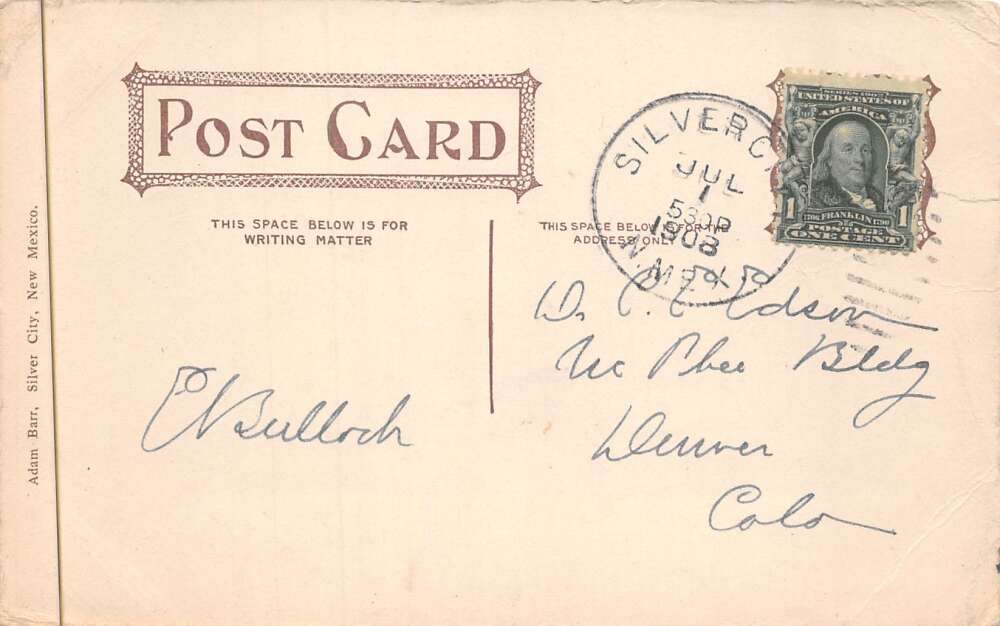 POST CARD
THIS SPACE BELOW IS FOR
WRITING MATTER
THIS SPACE BELOW IS FOR THE
ADDRESS ONLY
SILVER C
JUL
1
530P
1908
N. MEX.
SERIES 1902
UNITED STATES OF
AMERICA
1 1706 FRANKLIN 1790 1
POSTAGE
ONE CENT
Dr. C. E. Edson
Mc Phee Bldg
Denver
Colo
E N Bullock
Adam Barr, Silver City, New Mexico.